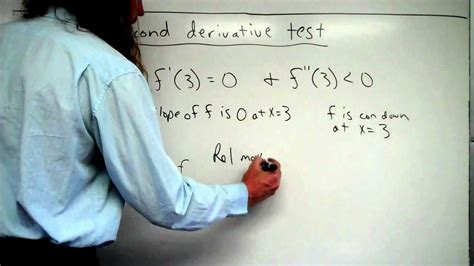 cond derivative test
f'(3) = 0 & f''(3) < 0
lope of f is 0 at x=3
f is con down
at x=3
f
Rel max